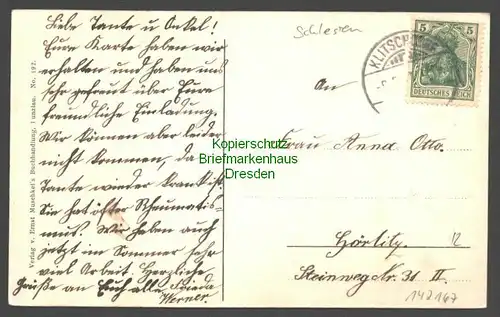 Liebe Tante u. Onkel!
Eure Karte haben wir
erhalten und haben uns
sehr gefreut über Eure
freundliche Einladung.
Wir können aber leider
nicht kommen, da
Tante wieder krank ist.
Sie hat öfter Rheumatis-
mus. Wir haben auch
jetzt im Sommer sehr
viel Arbeit. Herzliche
Grüße an Euch alle Frieda
Werner
Verlag v. Ernst Muschket's Buchhandlung, Bunzlau. No. 192.
Schlesien
KLITSCH
5 5
DEUTSCHES REICH
An
Frau Anna Otto.
Kopierschutz
Briefmarkenhaus
Dresden
Görlitz.
Steinweg Nr. 31 II.
12
142167